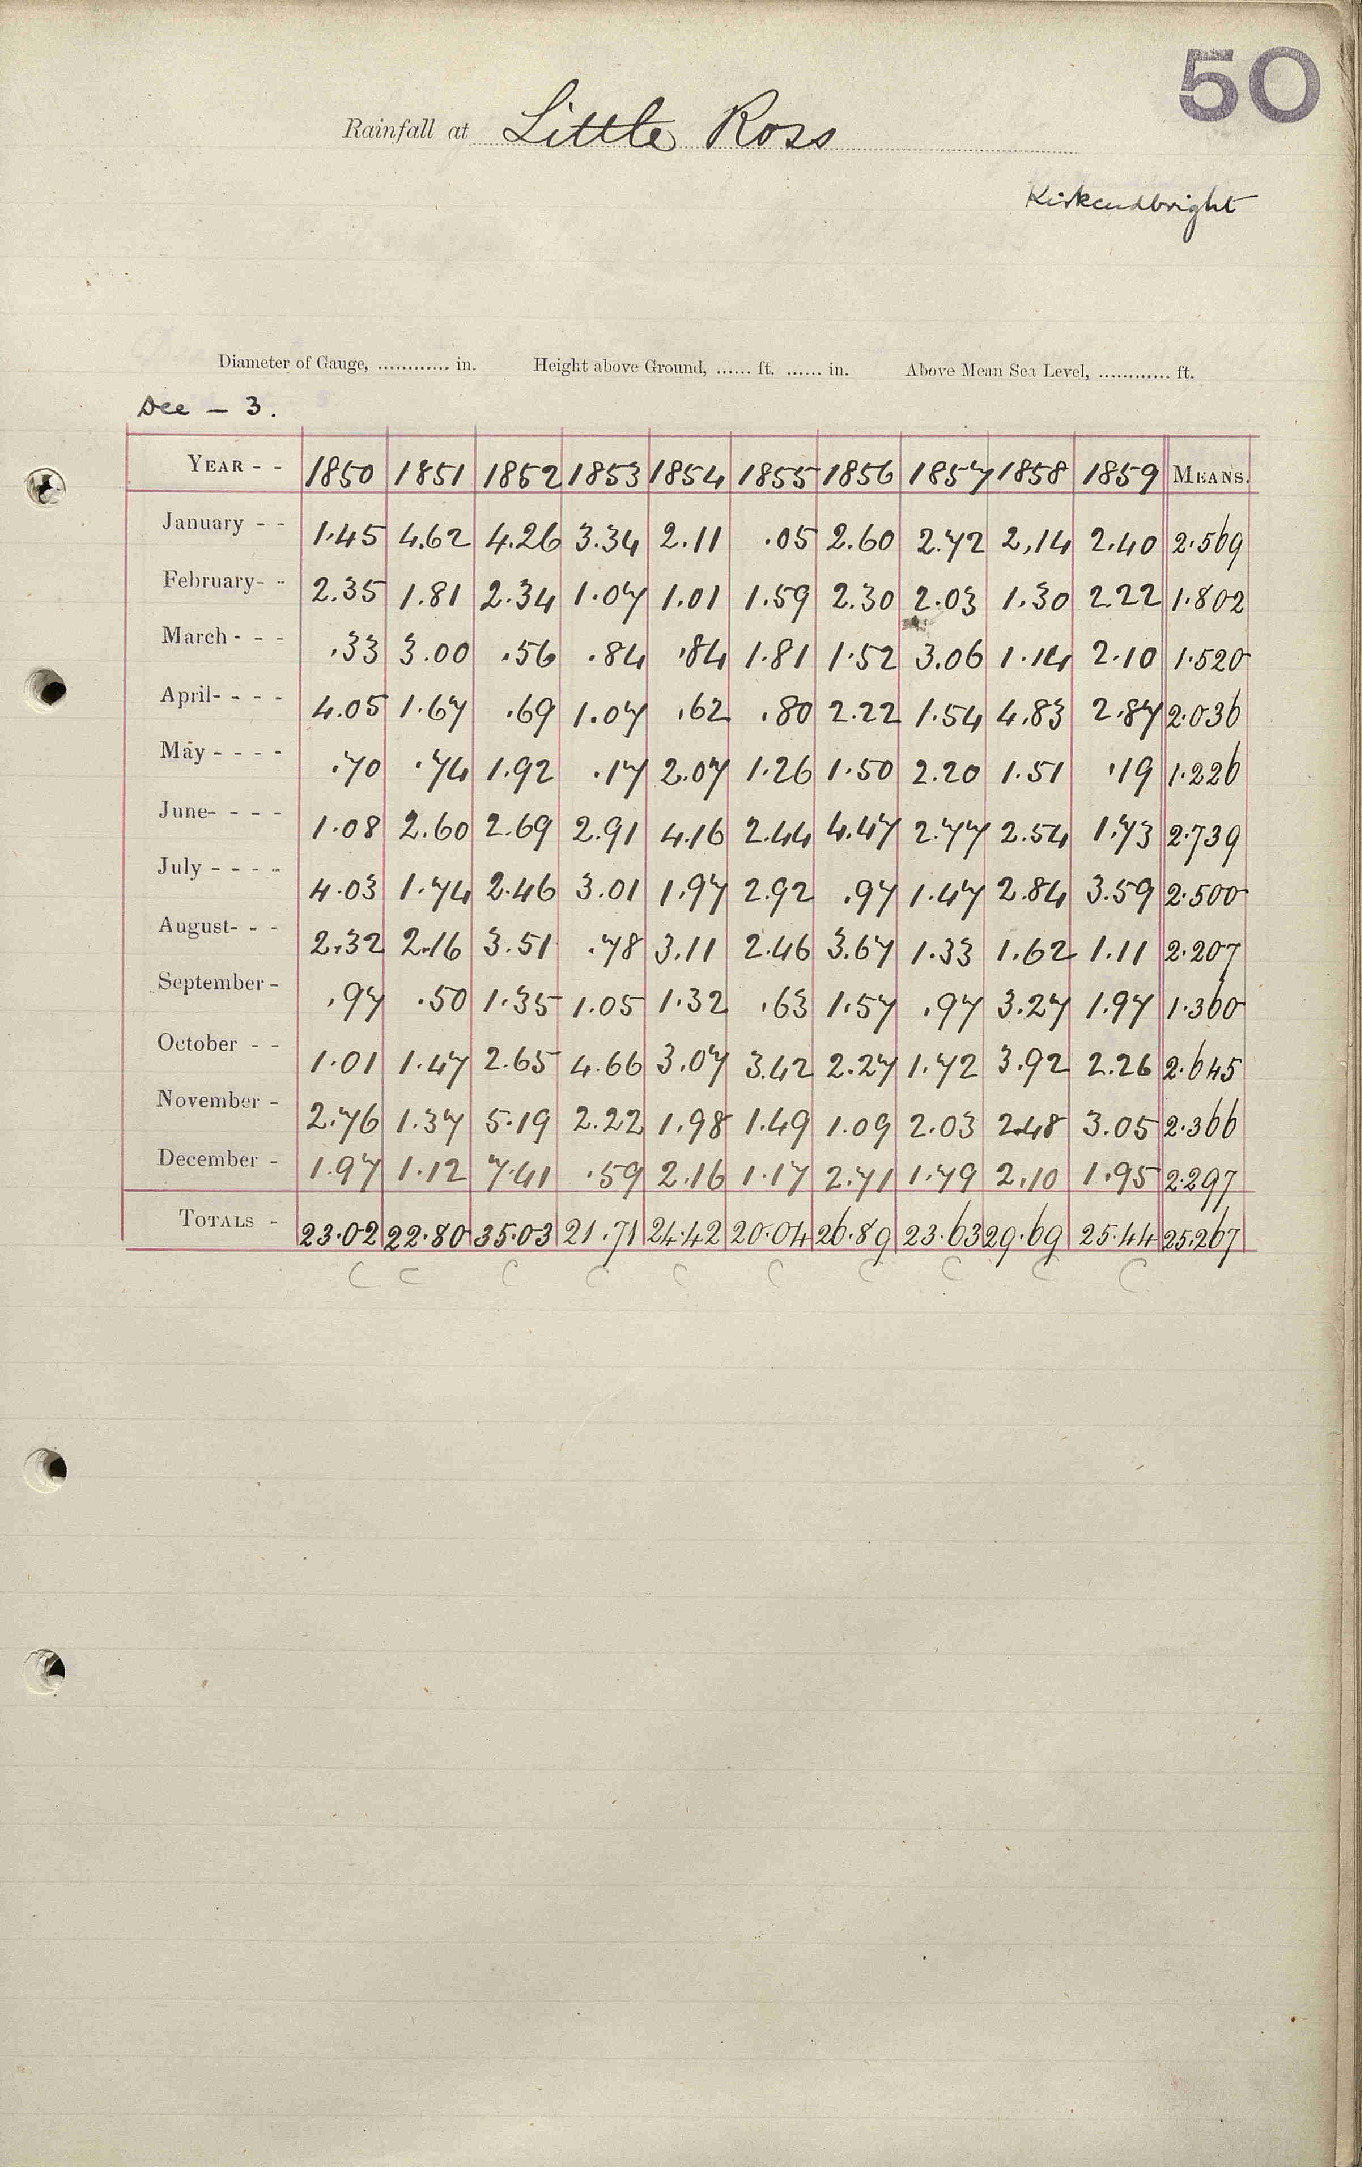 50
Rainfall at Little Ross
Kirkcudbright
Diameter of Gauge, ............ in. Height above Ground, ...... ft. ...... in. Above Mean Sea Level, ............ ft.
Dee — 3.
YEAR - - 1850 1851 1852 1853 1854 1855 1856 1857 1858 1859 MEANS.
January - - 1.45 4.62 4.26 3.34 2.11 .05 2.60 2.72 2.14 2.40 2.569
February- - 2.35 1.81 2.34 1.07 1.01 1.59 2.30 2.03 1.30 2.22 1.802
March - - - .33 3.00 .56 .84 .84 1.81 1.52 3.06 1.14 2.10 1.520
April- - - - 4.05 1.67 .69 1.07 .62 .80 2.22 1.54 4.83 2.87 2.036
May - - - - .70 .74 1.92 .17 2.07 1.26 1.50 2.20 1.51 .19 1.226
June- - - - 1.08 2.60 2.69 2.91 4.16 2.44 4.47 2.77 2.54 1.73 2.739
July - - - - 4.03 1.74 2.46 3.01 1.97 2.92 .97 1.47 2.84 3.59 2.500
August- - - 2.32 2.16 3.51 .78 3.11 2.46 3.67 1.33 1.62 1.11 2.207
September - .97 .50 1.35 1.05 1.32 .63 1.57 .97 3.27 1.97 1.360
October - - 1.01 1.47 2.65 4.66 3.07 3.42 2.27 1.72 3.92 2.26 2.645
November - 2.76 1.37 5.19 2.22 1.98 1.49 1.09 2.03 2.48 3.05 2.366
December - 1.97 1.12 7.41 .59 2.16 1.17 2.71 1.79 2.10 1.95 2.297
TOTALS - 23.02 22.80 35.03 21.71 24.42 20.04 26.89 23.63 29.69 25.44 25.267
C C C C C C C C C C